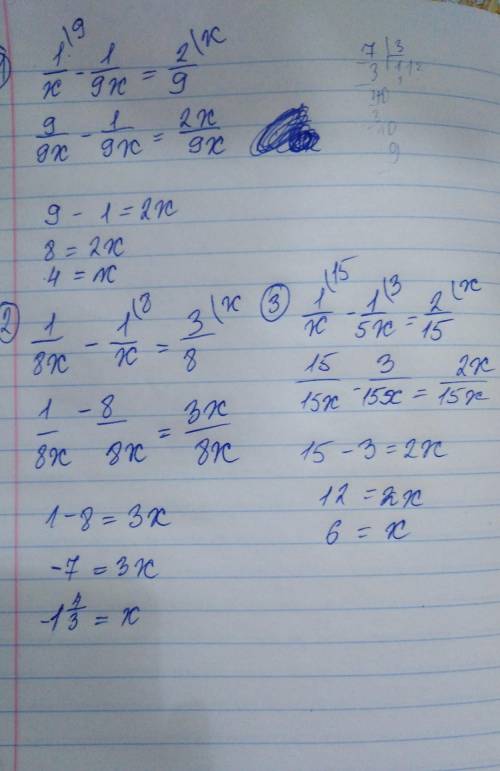 1
1/x (9 - 1/9x = 2/9 (x
9/9x - 1/9x = 2x/9x
9 - 1 = 2x
8 = 2x
4 = x
2
1/8x - 1/x (8 = 3/8 (x
1/8x - 8/8x = 3x/8x
1 - 8 = 3x
-7 = 3x
-1 4/3 = x
3
1/x (15 - 1/5x (3 = 2/15 (x
15/15x - 3/15x = 2x/15x
15 - 3 = 2x
12 = 2x
6 = x
7 3
3